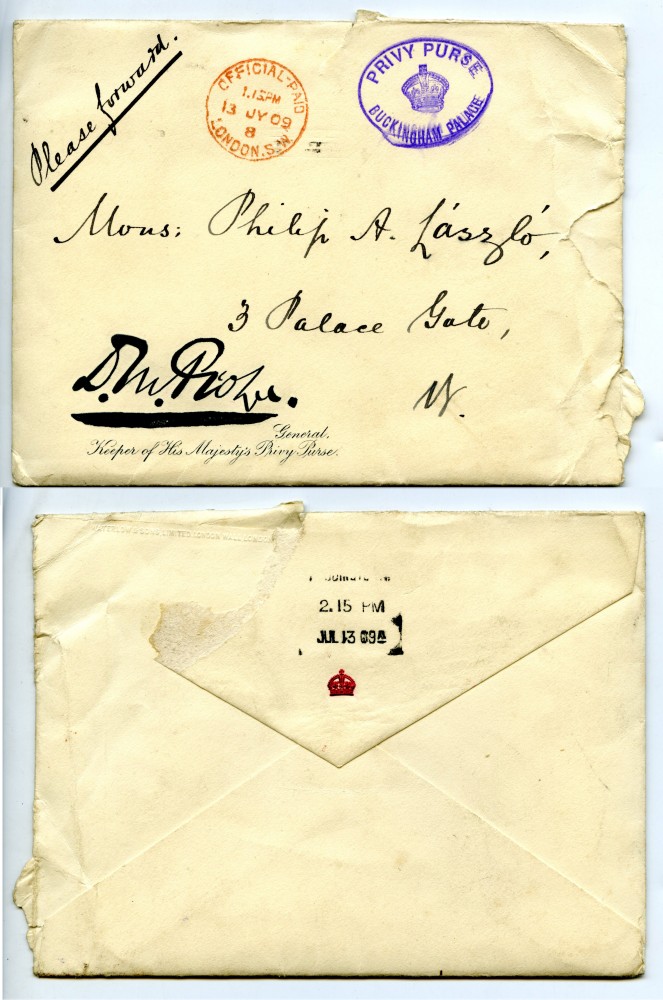 Please forward.
OFFICIAL-PAID
1.15PM
13 JY 09
8
LONDON.S.W
PRIVY PURSE
BUCKINGHAM PALACE
Mons: Philip A. László,
3 Palace Gate,
W.
D.M. Probyn.
General.
Keeper of His Majesty's Privy Purse.
2.15 PM
JUL 13 09